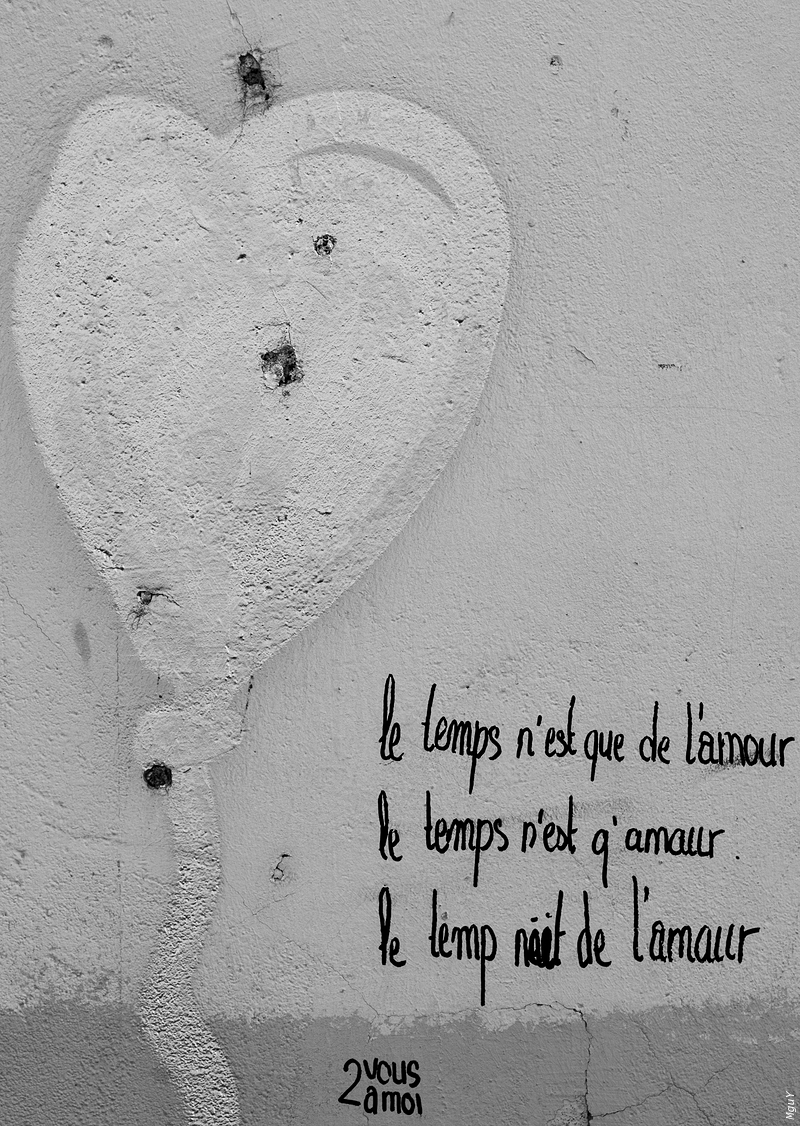 le temps n'est que de l'amour
le temps n'est q'amour.
le temp nait de l'amour
2 vous
a moi
MguY